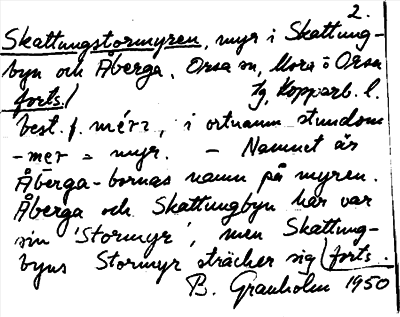 2.
Skattungstormyren, myr i Skattung-
byn och Åberga, Orsa sn, Mora ö Orsa
forts./ tg, Kopparb. l.
best. f. mérr, i ortnamn stundom
-mer = myr. - Namnet är
Åberga-bornas namn på myren.
Åberga och Skattungbyn har var
sin 'Stormyr', men Skattung-
byns Stormyr sträcker sig forts.
B. Granholm 1950